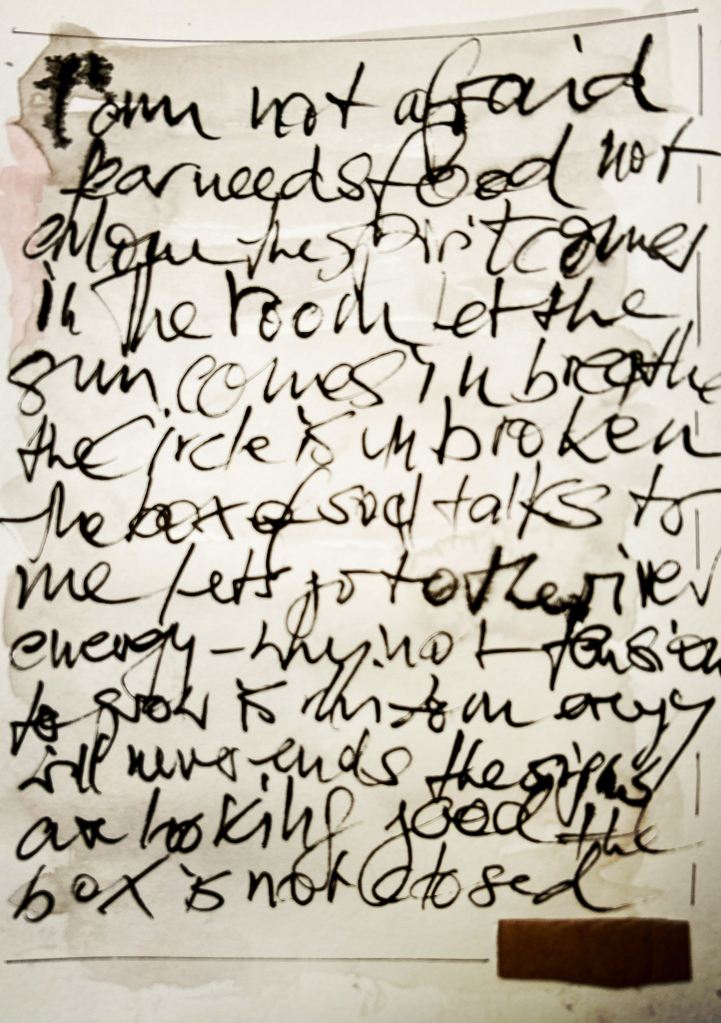 I am not afraid
fear needs food not
the spirit comes
in The room Let the
sun comes in breathe
the Circle is unbroken
the box of talks to
me lets go to the river
energy - why not tension
to grow is energy
will never ends the signs
are looking good the
box is not closed